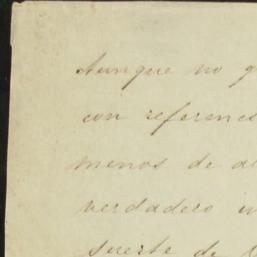 Aunque no g
con referenc
menos de a
verdadero in
suerte de